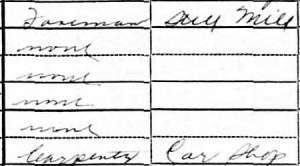 Foreman Mill
none
none
none
none
Carpenter Car Shop